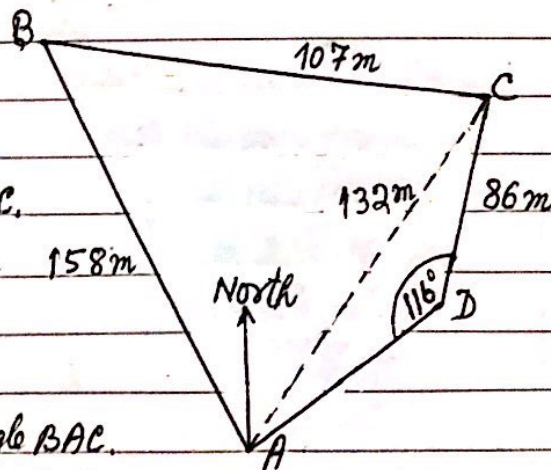 B
107m
C
C.
132m
86m
158m
North
116°
D
gle BAC.
A